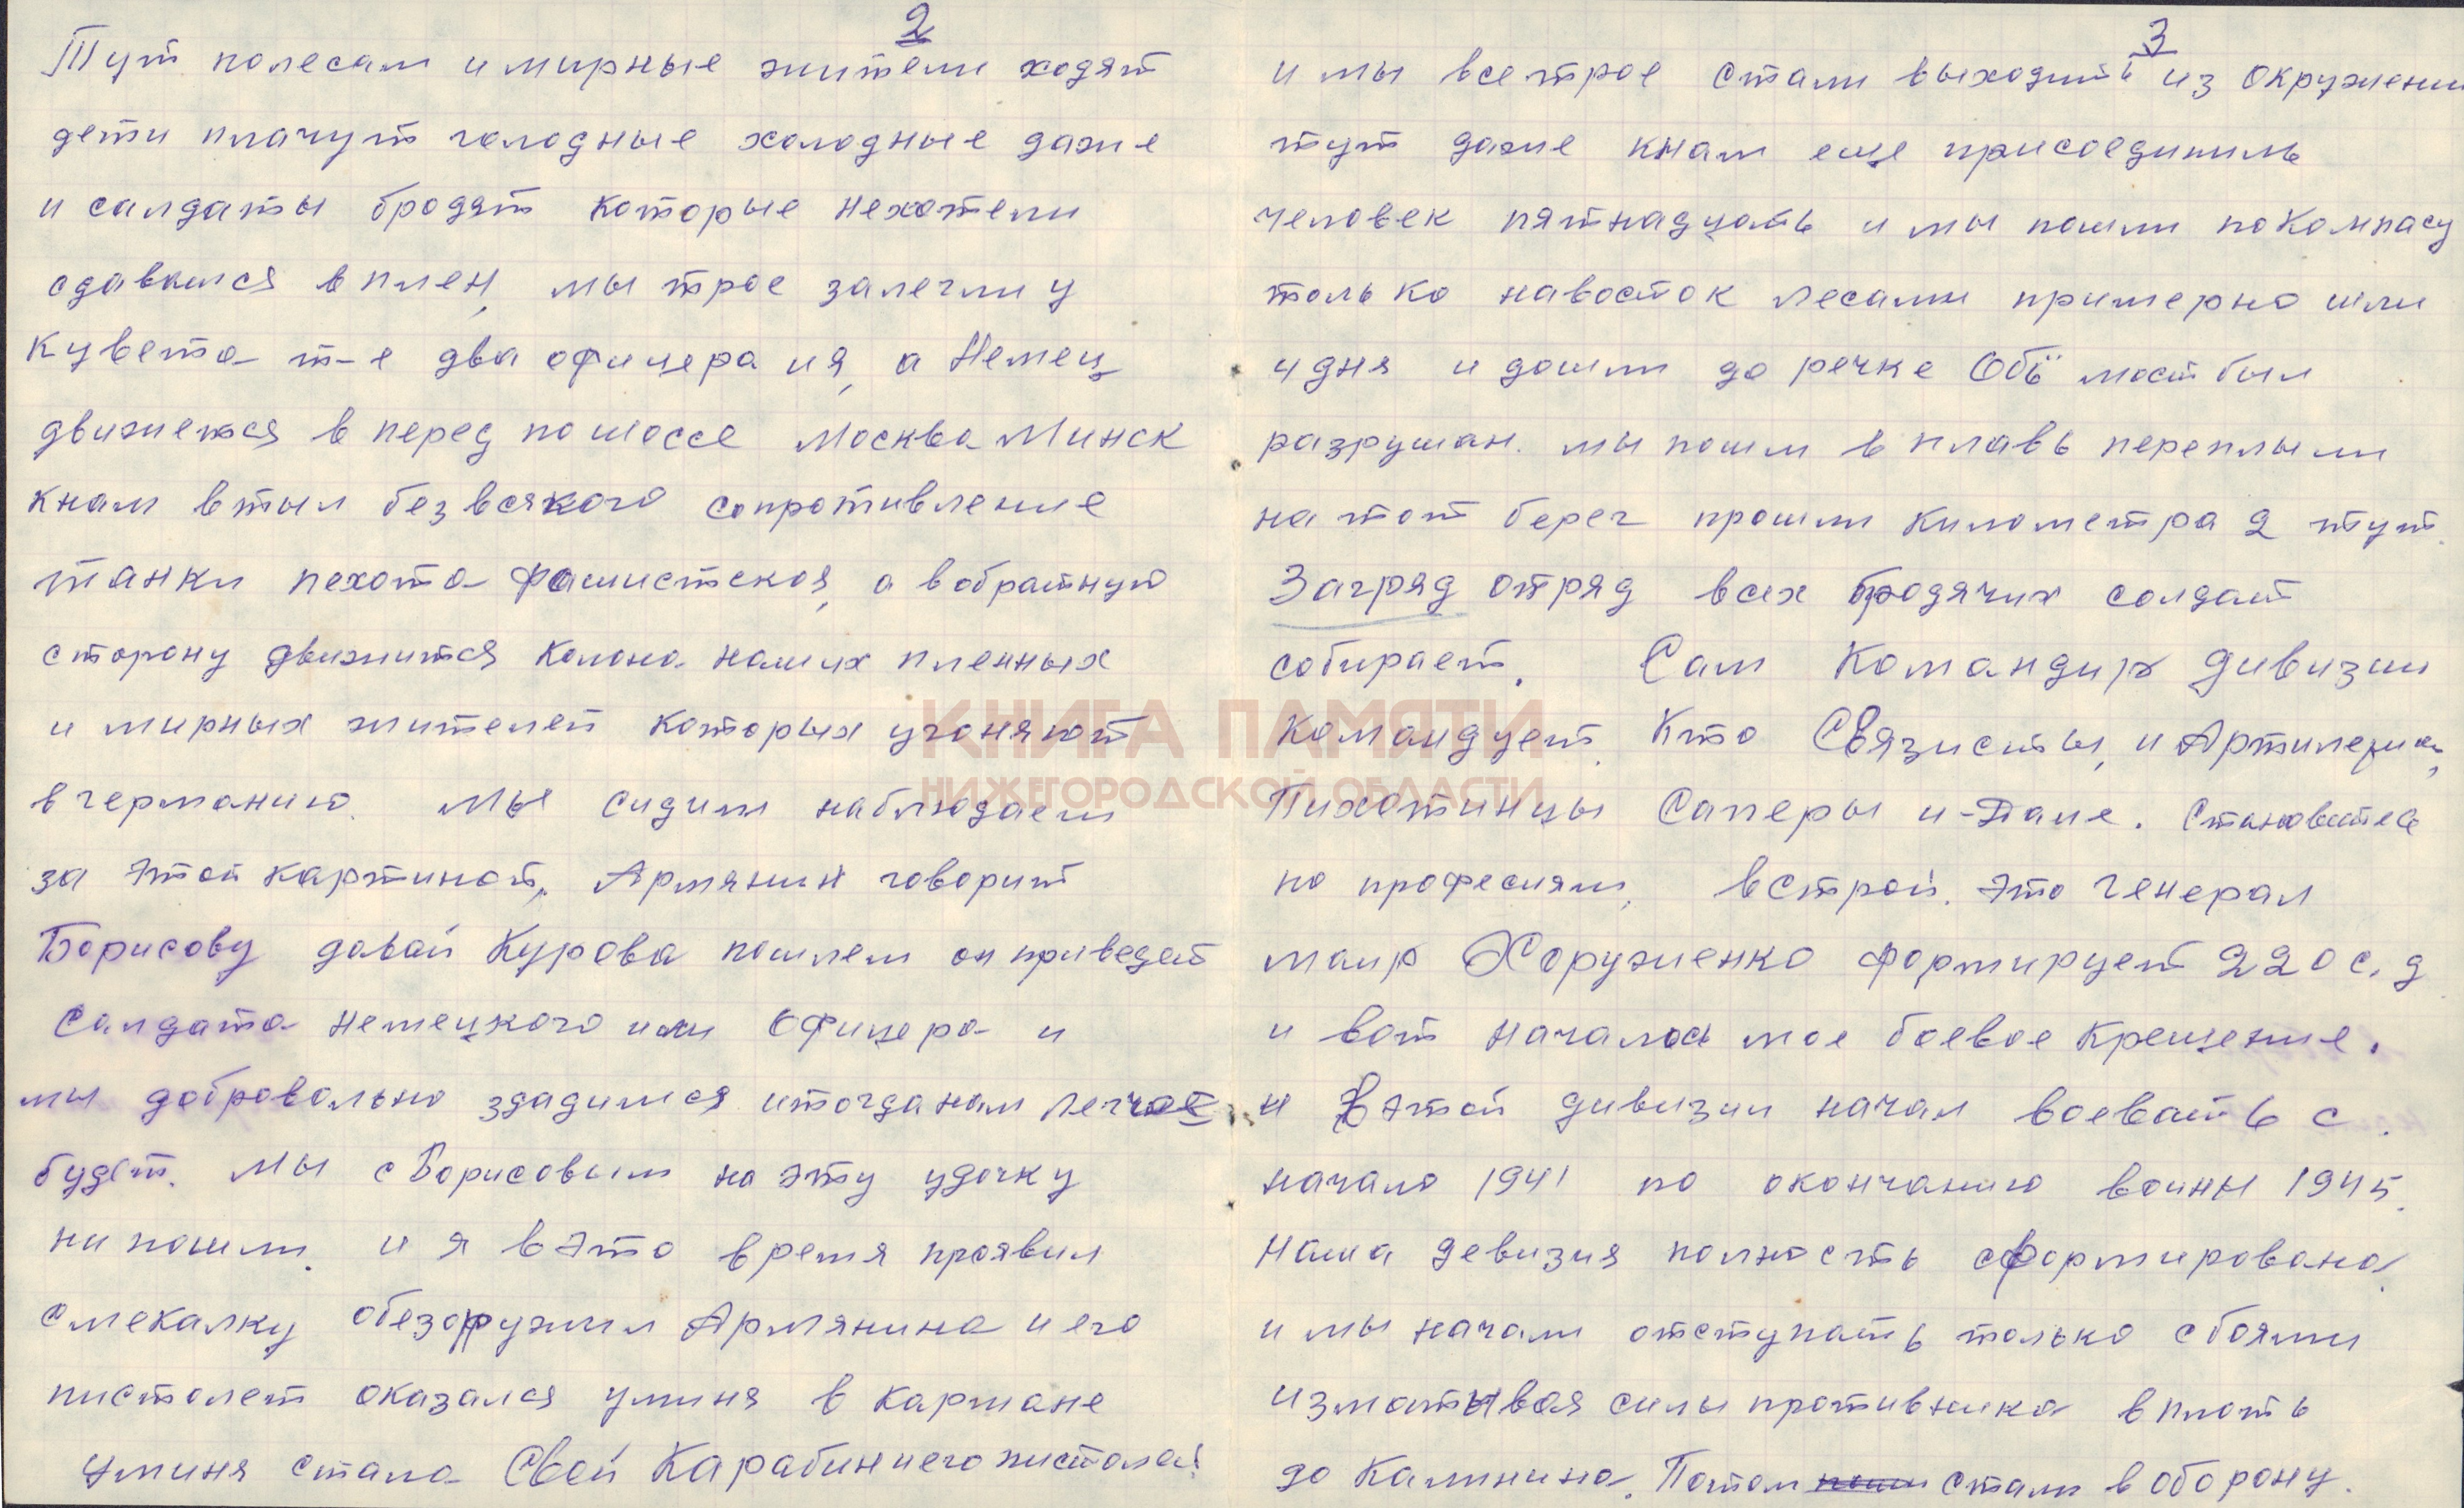 2
Тут полесам и мирные жители ходят
дети плачут голодные холодные даже
и салдаты бродят которые нехотели
сдаваться в плен, мы трое залегли у
кувета т-е два офицера ия, а Немец
движется в перед по шоссе Москва Минск
кнам втыл без всякого сопротивление
танки пехота фашистская, а вобратную
сторону движится колона наших пленных
и мирных жителей которых угоняют
в германию. Мы сидим наблюдаем
за этой картиной, Армянин говорит
Борисову давай Курова пошлем он приведет
Салдата немецкого или Офицера и
мы добровольно здадимся итогда нам легчае
будет. Мы с Борисовым на эту удочку
ни пошли. и я вэто время проявил
смекалку обезоружил Армянина и его
пистолет оказался уминя в кармане
уминя стало Свой Карабин иего пистолет
3
и мы все трое стали выходить из окружени
тут даже кнам еще присоединиль
человек пятнадцать и мы пошли покомпасу
только навосток лесами примерно шли
4 дня и дошли до речке Обь мост был
разрушан. мы пошли в плавь переплыли
на тот берег прошли километра 2 тут
Загряд отряд всех бродячих солдат
собирает. Сам Командир дивизии
командует. Кто Связисты, и Артилерия,
Пихотинцы Саперы и-тале. Становитесь
по професиям, встрой. это генерал
маир Хоруженко формирует 220 с. д
и вот началось мое боевое крещение.
и в этой дивизии начал воевать с
начало 1941 по окончанию воины 1945.
Наша девизия полность сформирована
и мы начали отступать только сбоями
изматывая силы противника вплоть
до Калинина. Потом стали в оборону.
КНИГА ПАМЯТИ
НИЖЕГОРОДСКОЙ ОБЛАСТИ